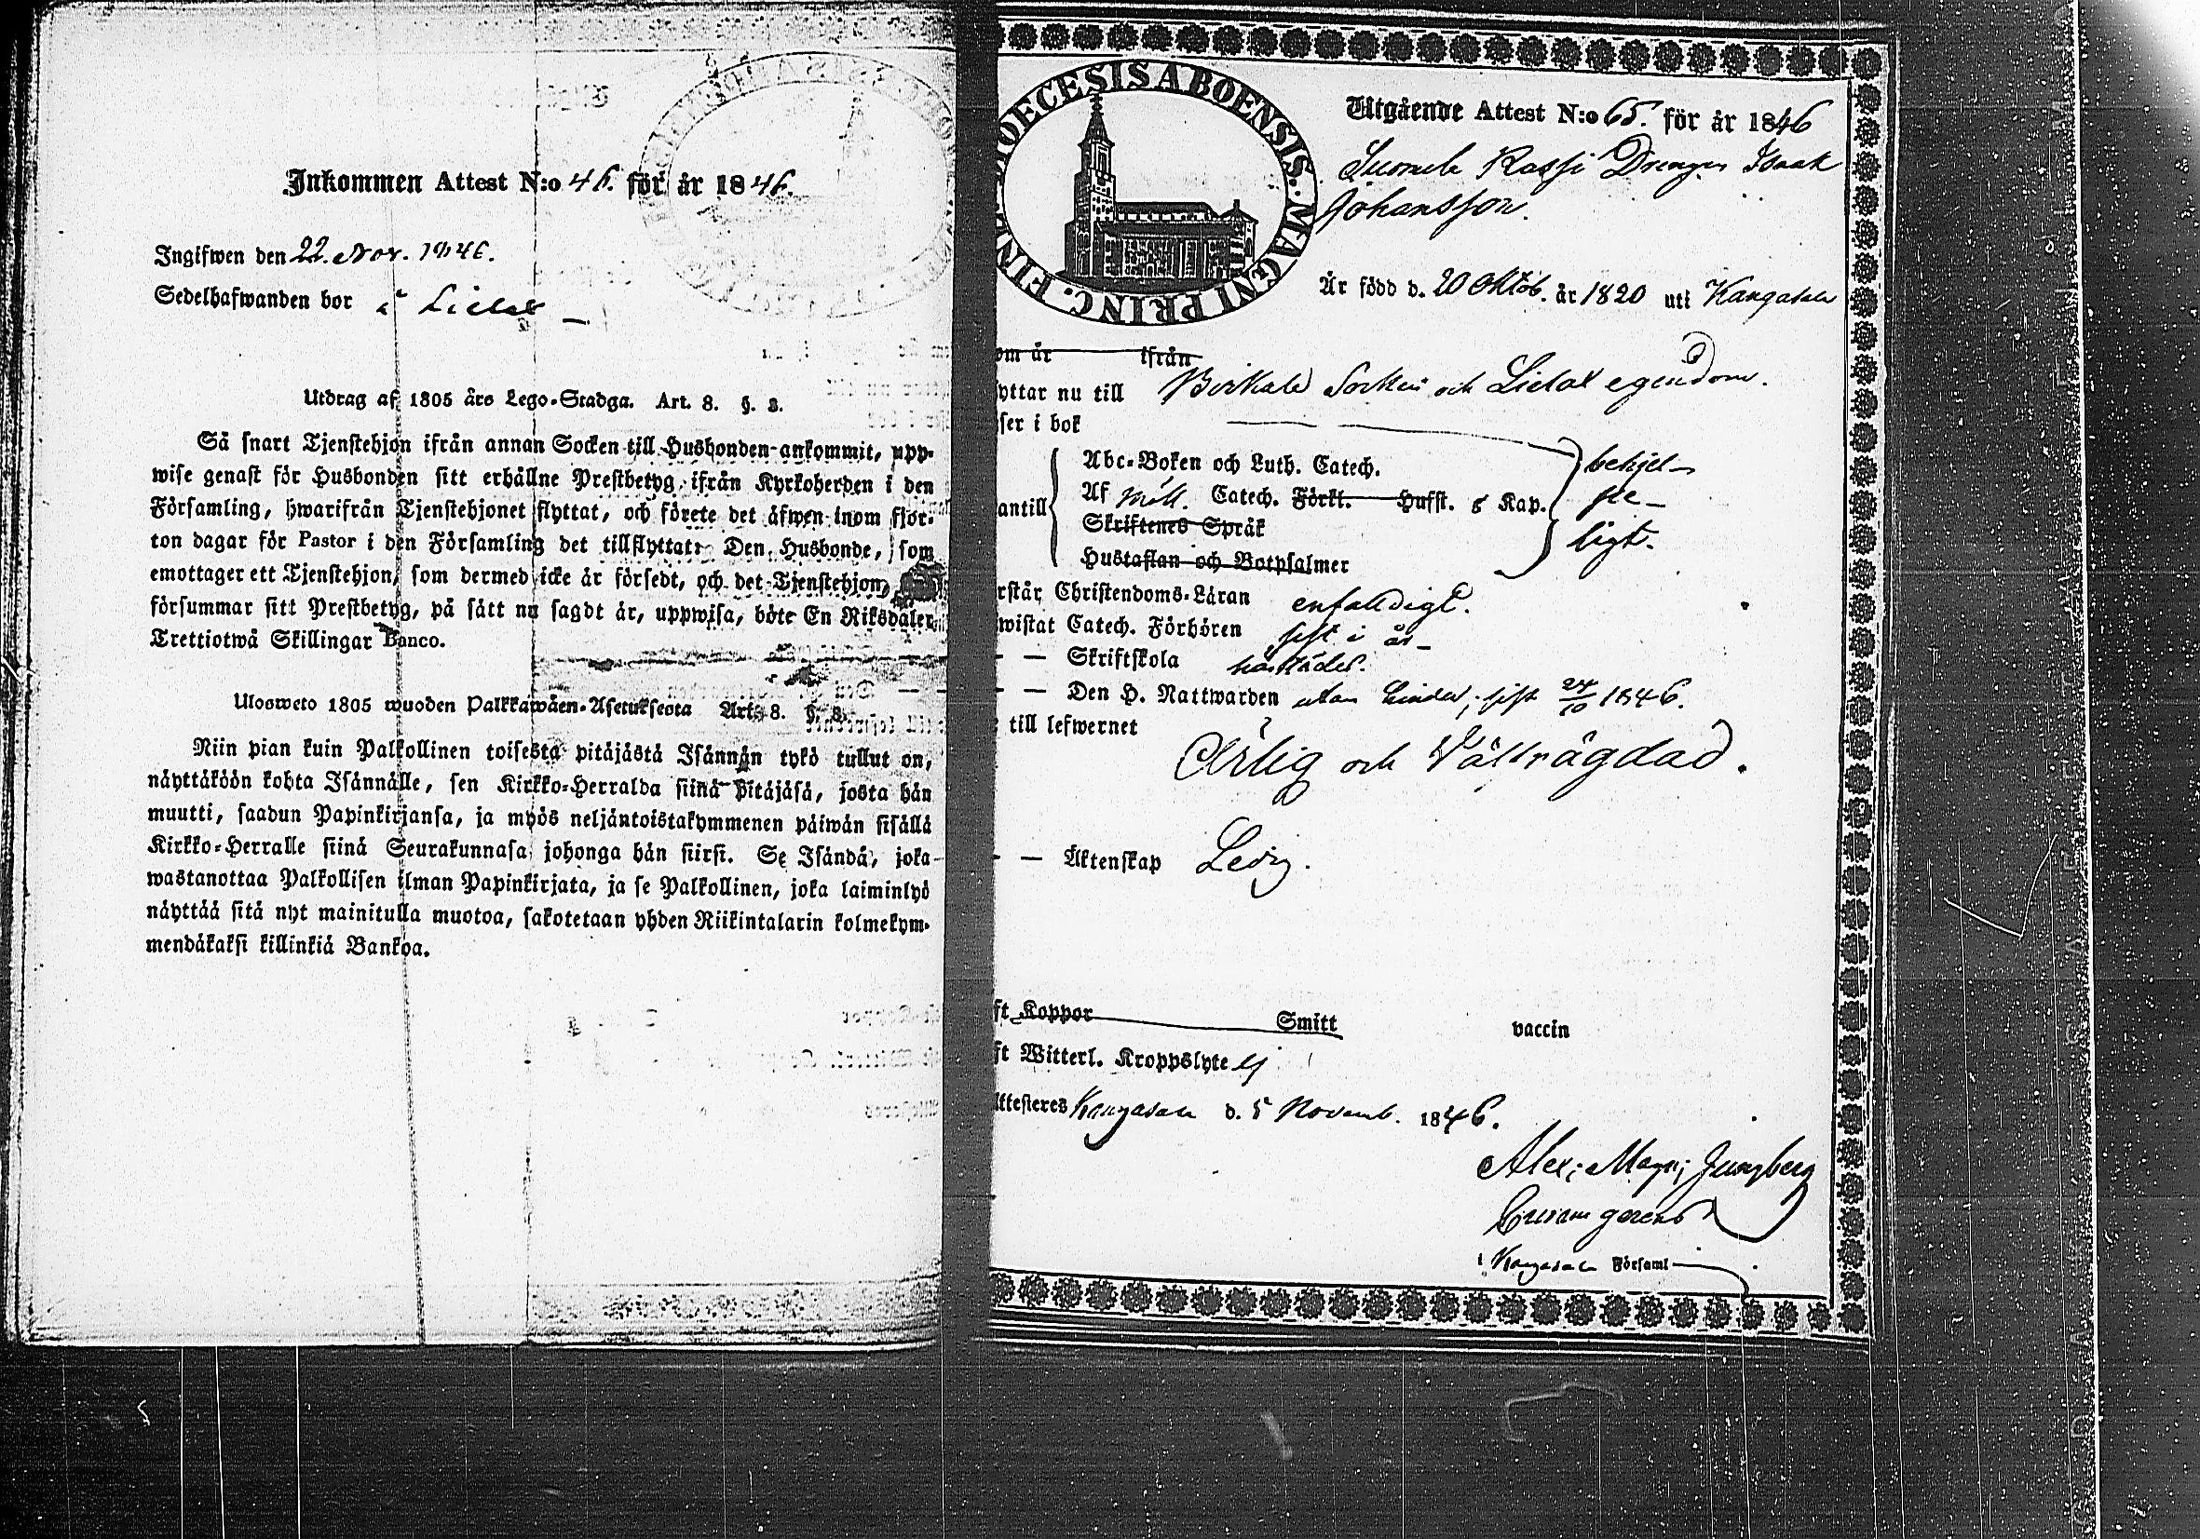 Inkommen Attest N:o 46. för år 1846.
Ingifwen den 22. Nov. 1846.
Sedelhafwanden bor å Lielax
Utdrag af 1805 års Lego-Stadga. Art. 8. §. 8.
Så snart Tjenstehjon ifrån annan Socken till Husbonden ankommit, upp-
wise genast för Husbonden sitt erhållne Prestbetyg ifrån Kyrkoherden i den
Församling, hwarifrån Tjenstehjonet flyttat, och förete det äfwen inom fjor-
ton dagar för Pastor i den Församling det tillflyttat: Den Husbonde, som
emottager ett Tjenstehjon, som dermed icke är försedt, och det Tjenstehjon,
försummar sitt Prestbetyg, på sätt nu sagdt är, uppwisa, böte En Riksdaler
Trettiotwå Skillingar Banco.
Ulosweto 1805 wuoden Palkkawäen-Asetuksesta Art. 8. §. 8.
Niin pian kuin Palkollinen toisesta pitäjästä Isännän tykö tullut on,
näyttäköön kohta Isännälle, sen Kirkko-Herralda siinä pitäjäsä, josta hän
muutti, saadun Papinkirjansa, ja myös neljäntoistakymmenen päiwän sisällä
Kirkko-Herralle siinä Seurakunnasa johonga hän siirsi. Se Isändä, joka
wastanottaa Palkollisen ilman Papinkirjata, ja se Palkollinen, joka laiminlyö
näyttää sitä nyt mainitulla muotoa, sakotetaan yhden Riikintalarin kolmekym-
mendäkaksi killinkiä Bankoa.
DIOECESIS ABOENSIS. MAGNI PRINC. FINL.
Utgående Attest N:o 65. för år 1846
Suomela Rassi Drengen Isaak
Johansson.
Är född d. 20 Oktob. år 1820 uti Kangasala
om är ifrån
yttar nu till Birkala Socken och Lielax egendom.
ser i bok
Abc-Boken och Luth. Catech. behjel-
antill Af Möll. Catech. Förkl. Hufst. 5 Kap. pe-
Skriftenes Språk ligt.
Hustaflan och Botpsalmer
rstår Christendoms-Läran enfaldigt.
wistat Catech. Förhören sist i år
— — Skriftskola härstädes.
— — Den H. Nattwarden utan hinder; sist 24/10 1846.
till lefwernet
Ärlig och Välfrägdad.
— — Äktenskap Ledig.
ft Koppor Smitt vaccin
ft Witterl. Kroppslyte ej
Attesteres Kangasala d. 5 Novemb. 1846.
Alex: Magn: Jungberg
Curam gerens
i Kangasala Församl